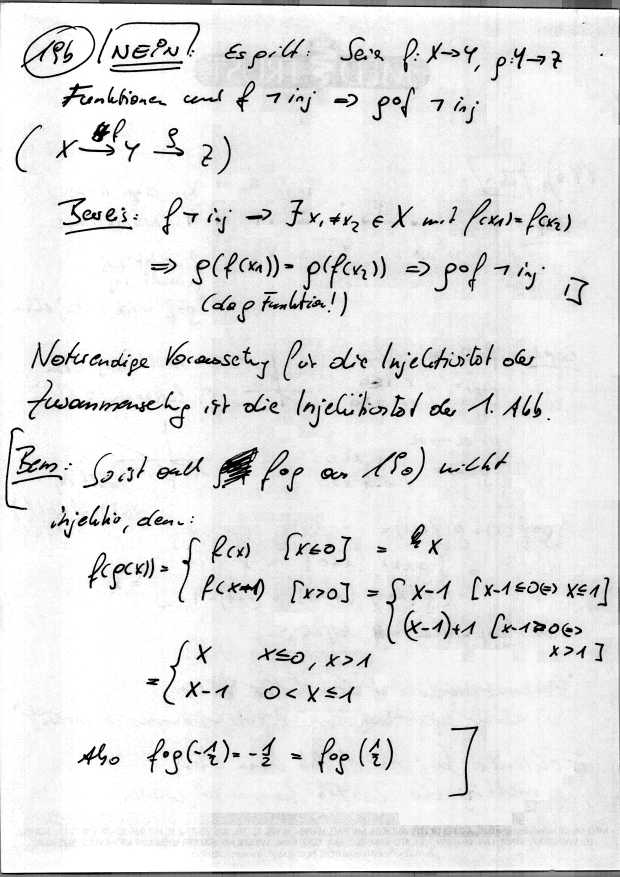 19b NEIN! Es gilt: Sein f: X→Y, g: Y→Z
Funktionen und f ¬ inj ⇒ g∘f ¬ inj
( X →f Y →g Z )
Beweis: f ¬ inj → ∃ x₁ ≠ x₂ ∈ X mit f(x1) = f(x2)
⇒ g(f(x1)) = g(f(x2)) ⇒ g∘f ¬ inj.
(da g Funktion!) □
Notwendige Voraussetzung für die Injektivität der
Zusammensetzung ist die Injektivität der 1. Abb.
[Bem: So ist auch f∘g aus 19a) nicht
injektiv, denn:
f(g(x)) = { f(x) [x≤0] = x
f(x-1) [x>0] = { x-1 [x-1≤0 ⇔ x≤1]
(x-1)+1 [x-1>0 ⇔
x>1]
= { x x≤0, x>1
x-1 0<x≤1
Also f∘g(-1/2) = -1/2 = f∘g(1/2) ]